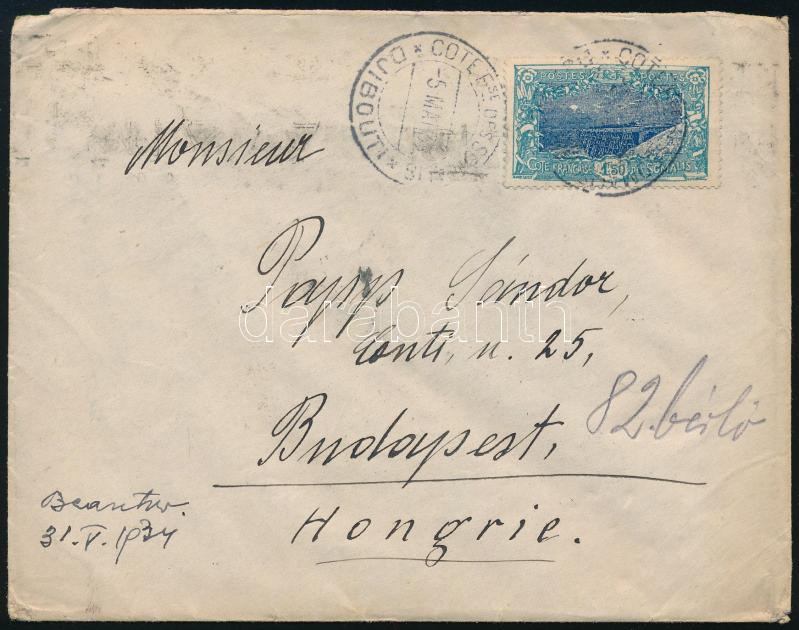 DJIBOUTI * COTE FSE DES SO
-5 MAI
COTE
POSTES POSTES
COTE FRANÇAISE 1f50 DES SOMALIS
Monsieur
Papp Sándor,
Conti, u. 25,
Budapest,
Hongrie.
82. bérlő
Beantw.
31.V.1934
darabanth